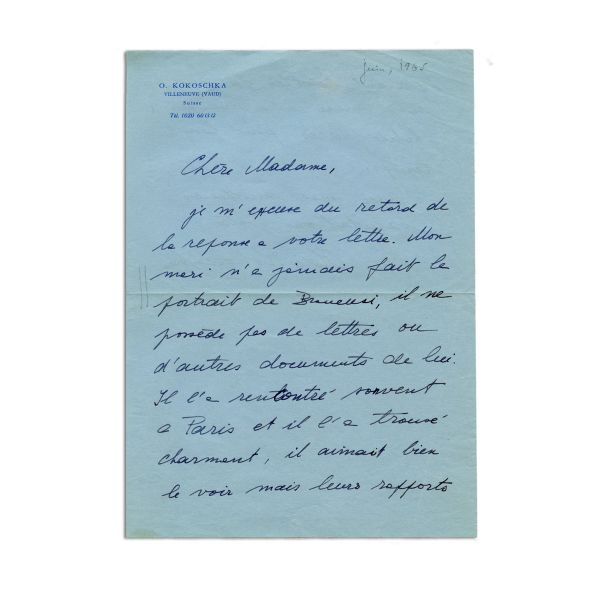 juin, 1965
O. KOKOSCHKA
VILLENEUVE (VAUD)
Suisse
Tél. (021) 60 13 12
Chère Madame,
je m'excuse du retard de
la reponse a votre lettre. Mon
mari n'a jamais fait le
portrait de il ne
possède pas de lettres ou
d'autres documents de lui.
Il l'a rencontré souvent
a Paris et il l'a trouvé
charment, il aimait bien
le voir mais leurs rapports